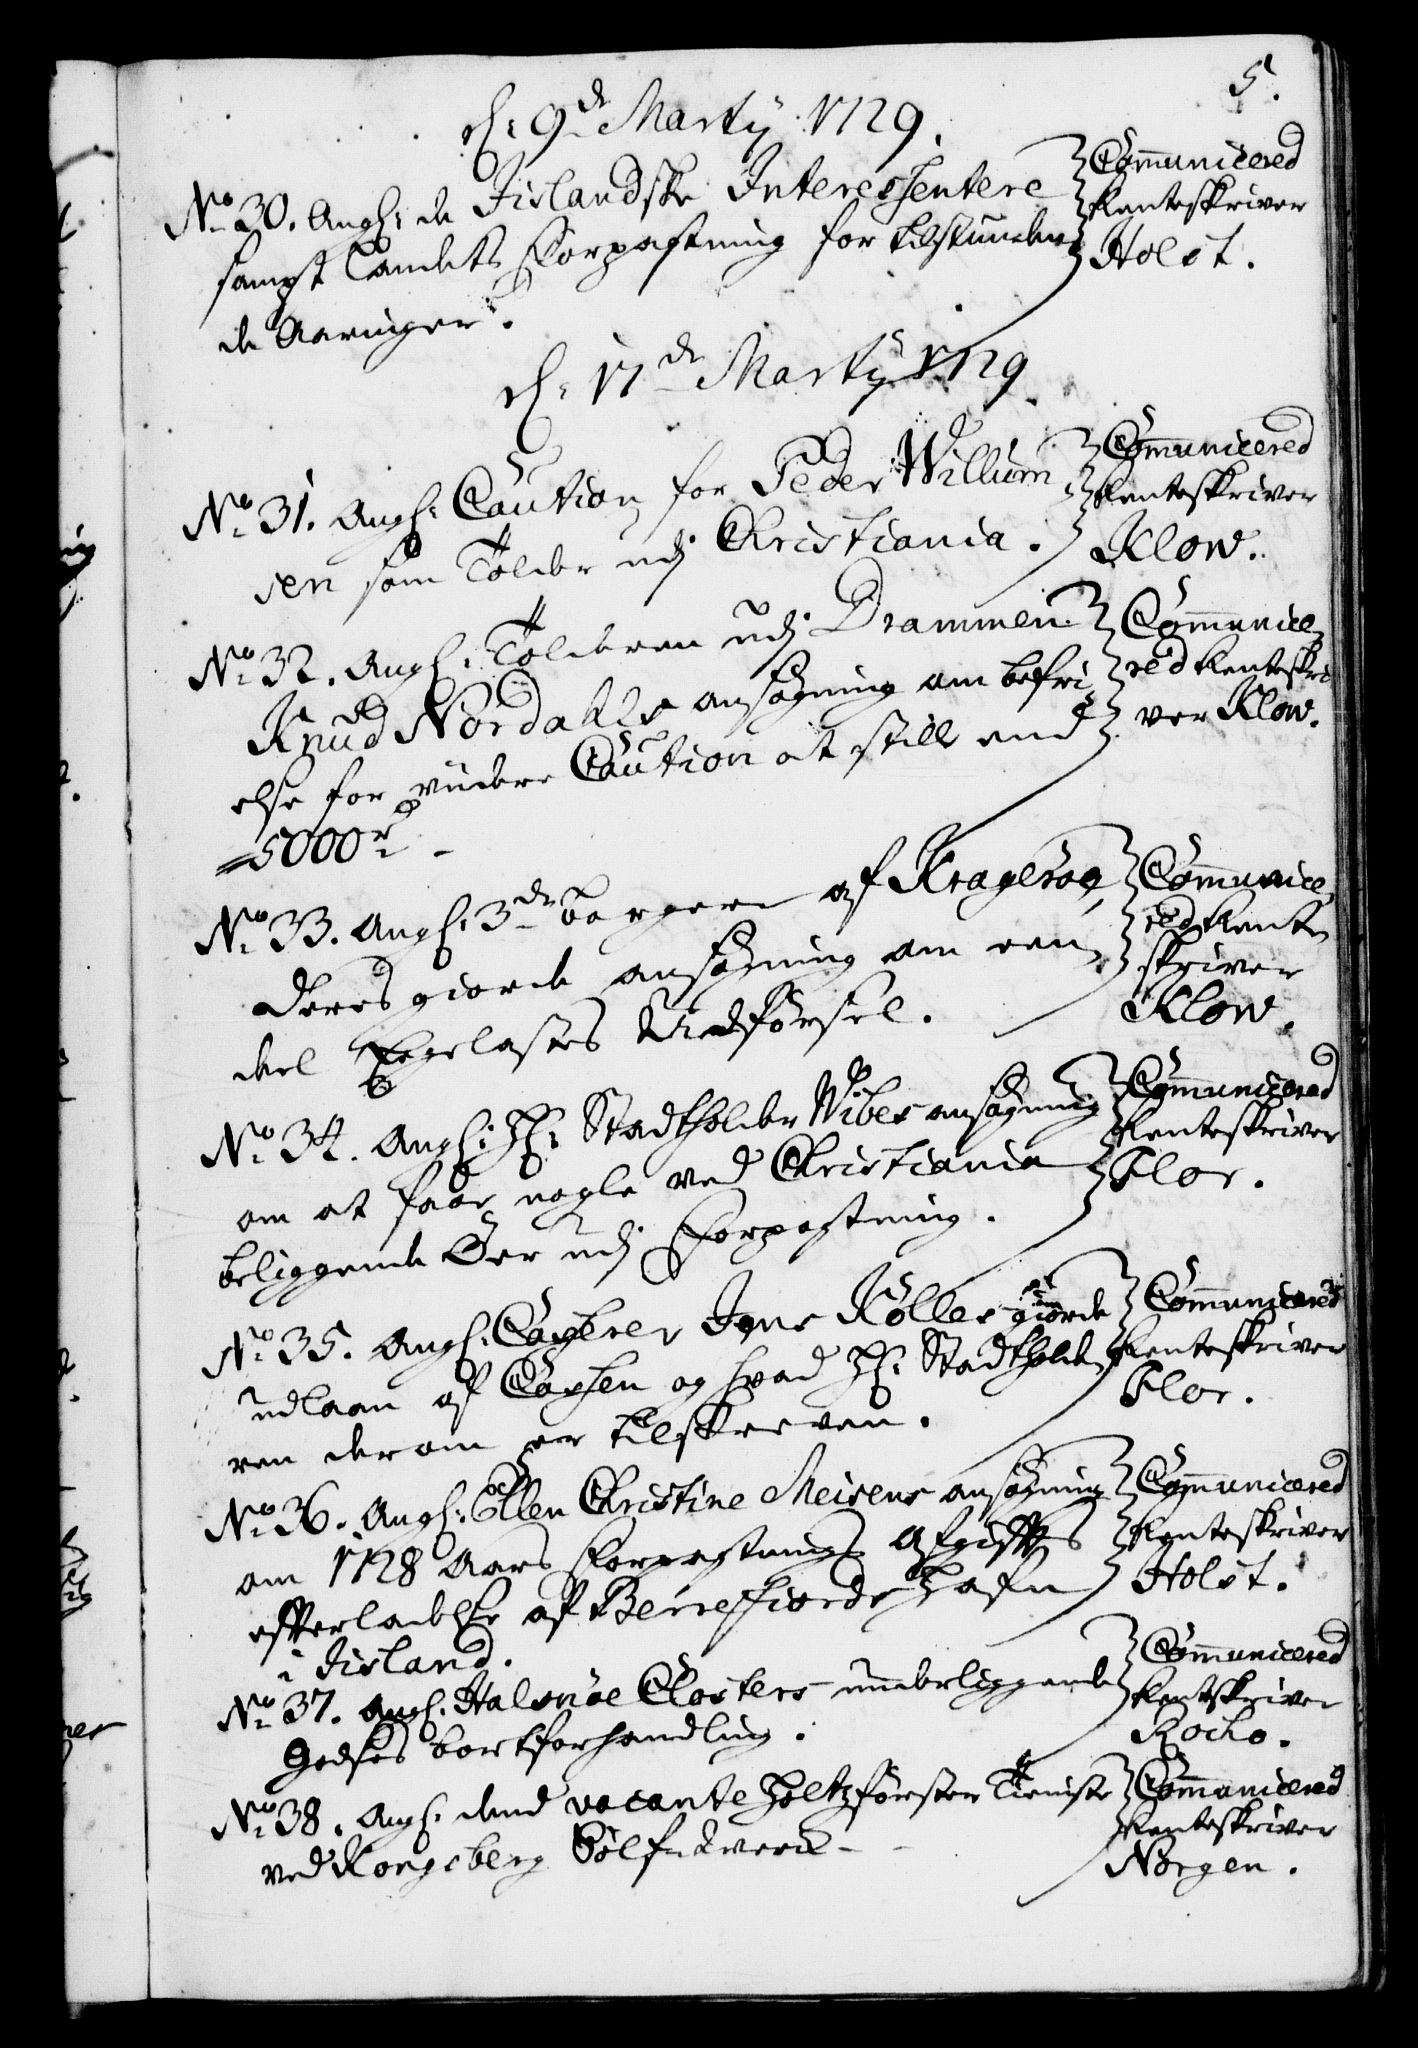 5.
d: 9de Martij 1729.
No 30. Angh: de Iislandske Interessentere
sampt Landets Forpagtning for tilstunden
de Aaringer.
Communicered
Renteskriver
Holst.
d: 17de Martij 1729
No 31. Angh: Caution for Peder Willum
sen som Tolder udj Christiania.
Communicered
Renteskriver
Klow.
No 32. Angh: Tolderen udj Drammen
Knud Nordahls ansøgning om befri
else for viidere Caution at stille end
5000 rd
Communice
red Renteskri
ver Klow.
No 33. Angh: 3de borgere af Kragerøe,
deres giorde ansøgning om een
deel Egelastes Udførsel.
Communice
red Rente
skriver
Klow.
No 34. Angh: Hr: Stadtholder Wibes ansøgning
om at faae nogle ved Christiania
beliggende Øer udj Forpagtning.
Communicered
Renteskriver
Flor.
No 35. Angh: Casserer Jens Kølles giorde
udlaan af Cassen og hvad Hr: Stadtholde
ren derom er tilskreven.
Communicered
Renteskriver
Flor.
No 36. Angh: Ellen Christine Meisens ansøgning
om 1728 Aars Forpagtnings Afgifts
efterladelse af Berrefiords Hafn
i Iisland.
Communicered
Renteskriver
Holst.
No 37. Angh: Halsnøe Closters underliggende
Godses bortforhandling.
Communicered
Renteskriver
Kocho.
No 38. Angh: dend vacante Holtzførster Tieniste
ved Kongsberg Sølf-Verck
Communicered
Renteskriver
Nørgen.